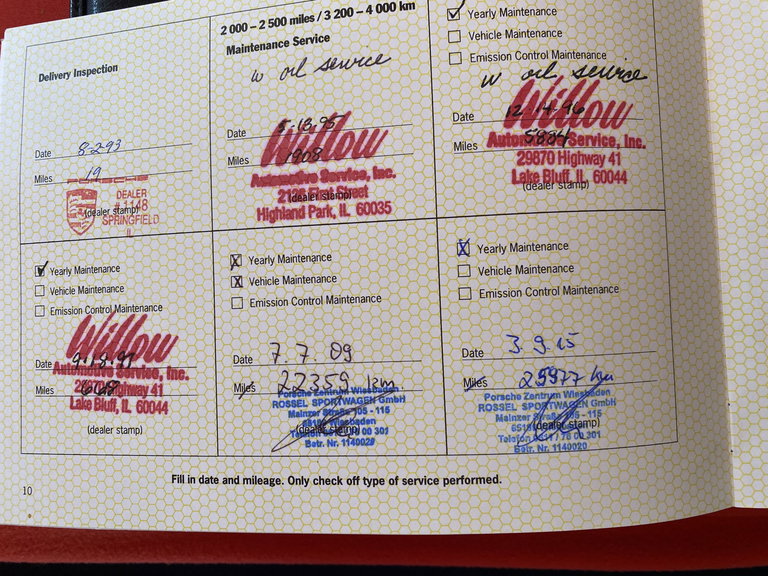 Delivery Inspection
Date 8-2-93
Miles 19
DEALER
# 1148
(dealer stamp)
SPRINGFIELD
IL
2 000 – 2 500 miles / 3 200 – 4 000 km
Maintenance Service
w oil service
Date 5-13-95
Willow
Miles 1908
Automotive Service, Inc.
First Street
(dealer stamp)
Highland Park, IL 60035
Yearly Maintenance
Vehicle Maintenance
Emission Control Maintenance
w oil service
Willow
Date 12-14-96
Miles 5884
Automotive Service, Inc.
29870 Highway 41
Lake Bluff, IL 60044
(dealer stamp)
Yearly Maintenance
Vehicle Maintenance
Emission Control Maintenance
Willow
Date
Automotive Service, Inc.
Miles
29870 Highway 41
Lake Bluff, IL 60044
(dealer stamp)
Yearly Maintenance
Vehicle Maintenance
Emission Control Maintenance
Date 7.7.09
Miles 22359 km
Porsche Zentrum Wiesbaden
ROSSEL SPORTWAGEN GmbH
Mainzer Straße 105 - 115
Wiesbaden
(dealer stamp)
Telefon 00 301
Betr. Nr. 1140020
Yearly Maintenance
Vehicle Maintenance
Emission Control Maintenance
Date 3.9.15
Miles 25977 km
Porsche Zentrum Wiesbaden
ROSSEL SPORTWAGEN GmbH
Mainzer Straße 105 - 115
Wiesbaden
(dealer stamp)
Telefon 0611 / 78 00 301
Betr. Nr. 1140020
Fill in date and mileage. Only check off type of service performed.
10